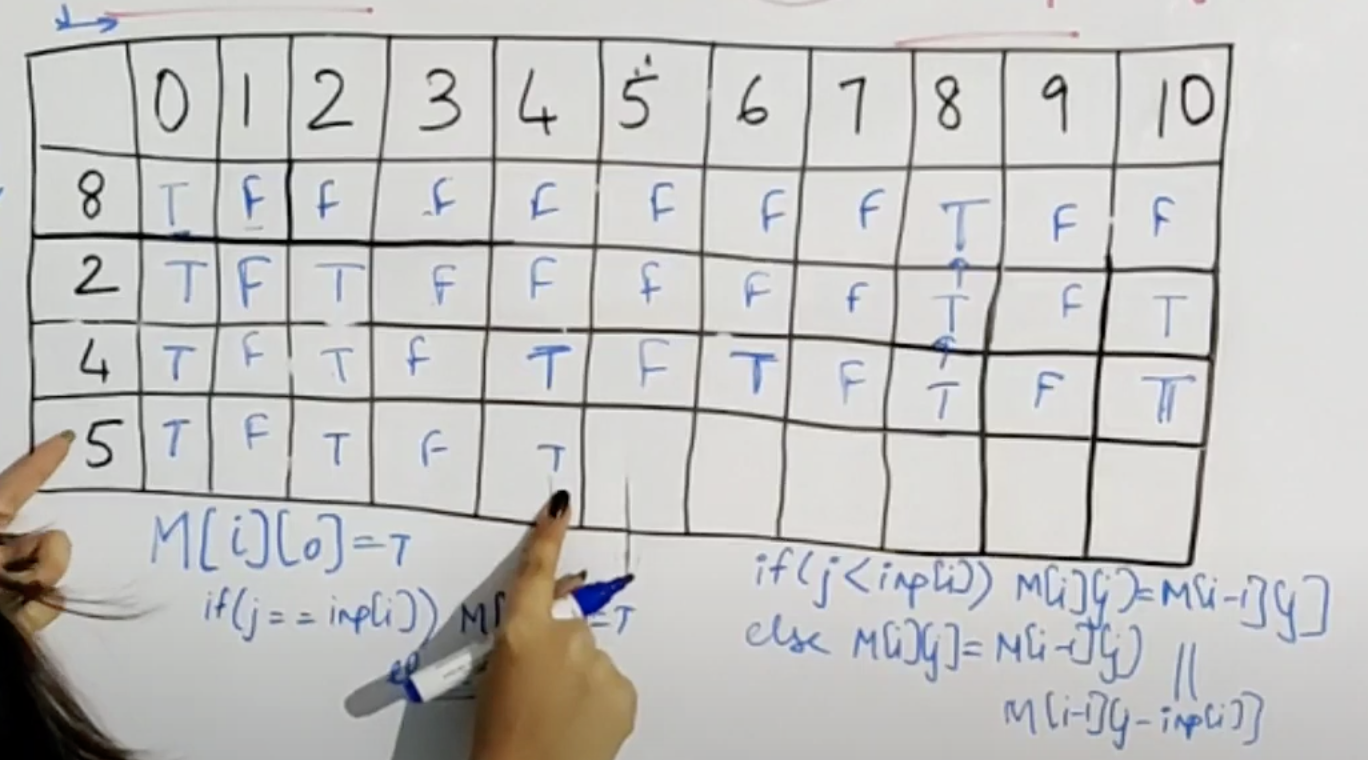 0 1 2 3 4 5 6 7 8 9 10
8 T F F F F F F F T F F
2 T F T F F F F F T F T
4 T F T F T F T F T F T
5 T F T F T
M[i][0]=T
if(j==inp[i]) M[ =T
if(j<inp[i]) M[i][j]=M[i-1][j]
else M[i][j]=M[i-1][j] ||
M[i-1][j-inp[i]]